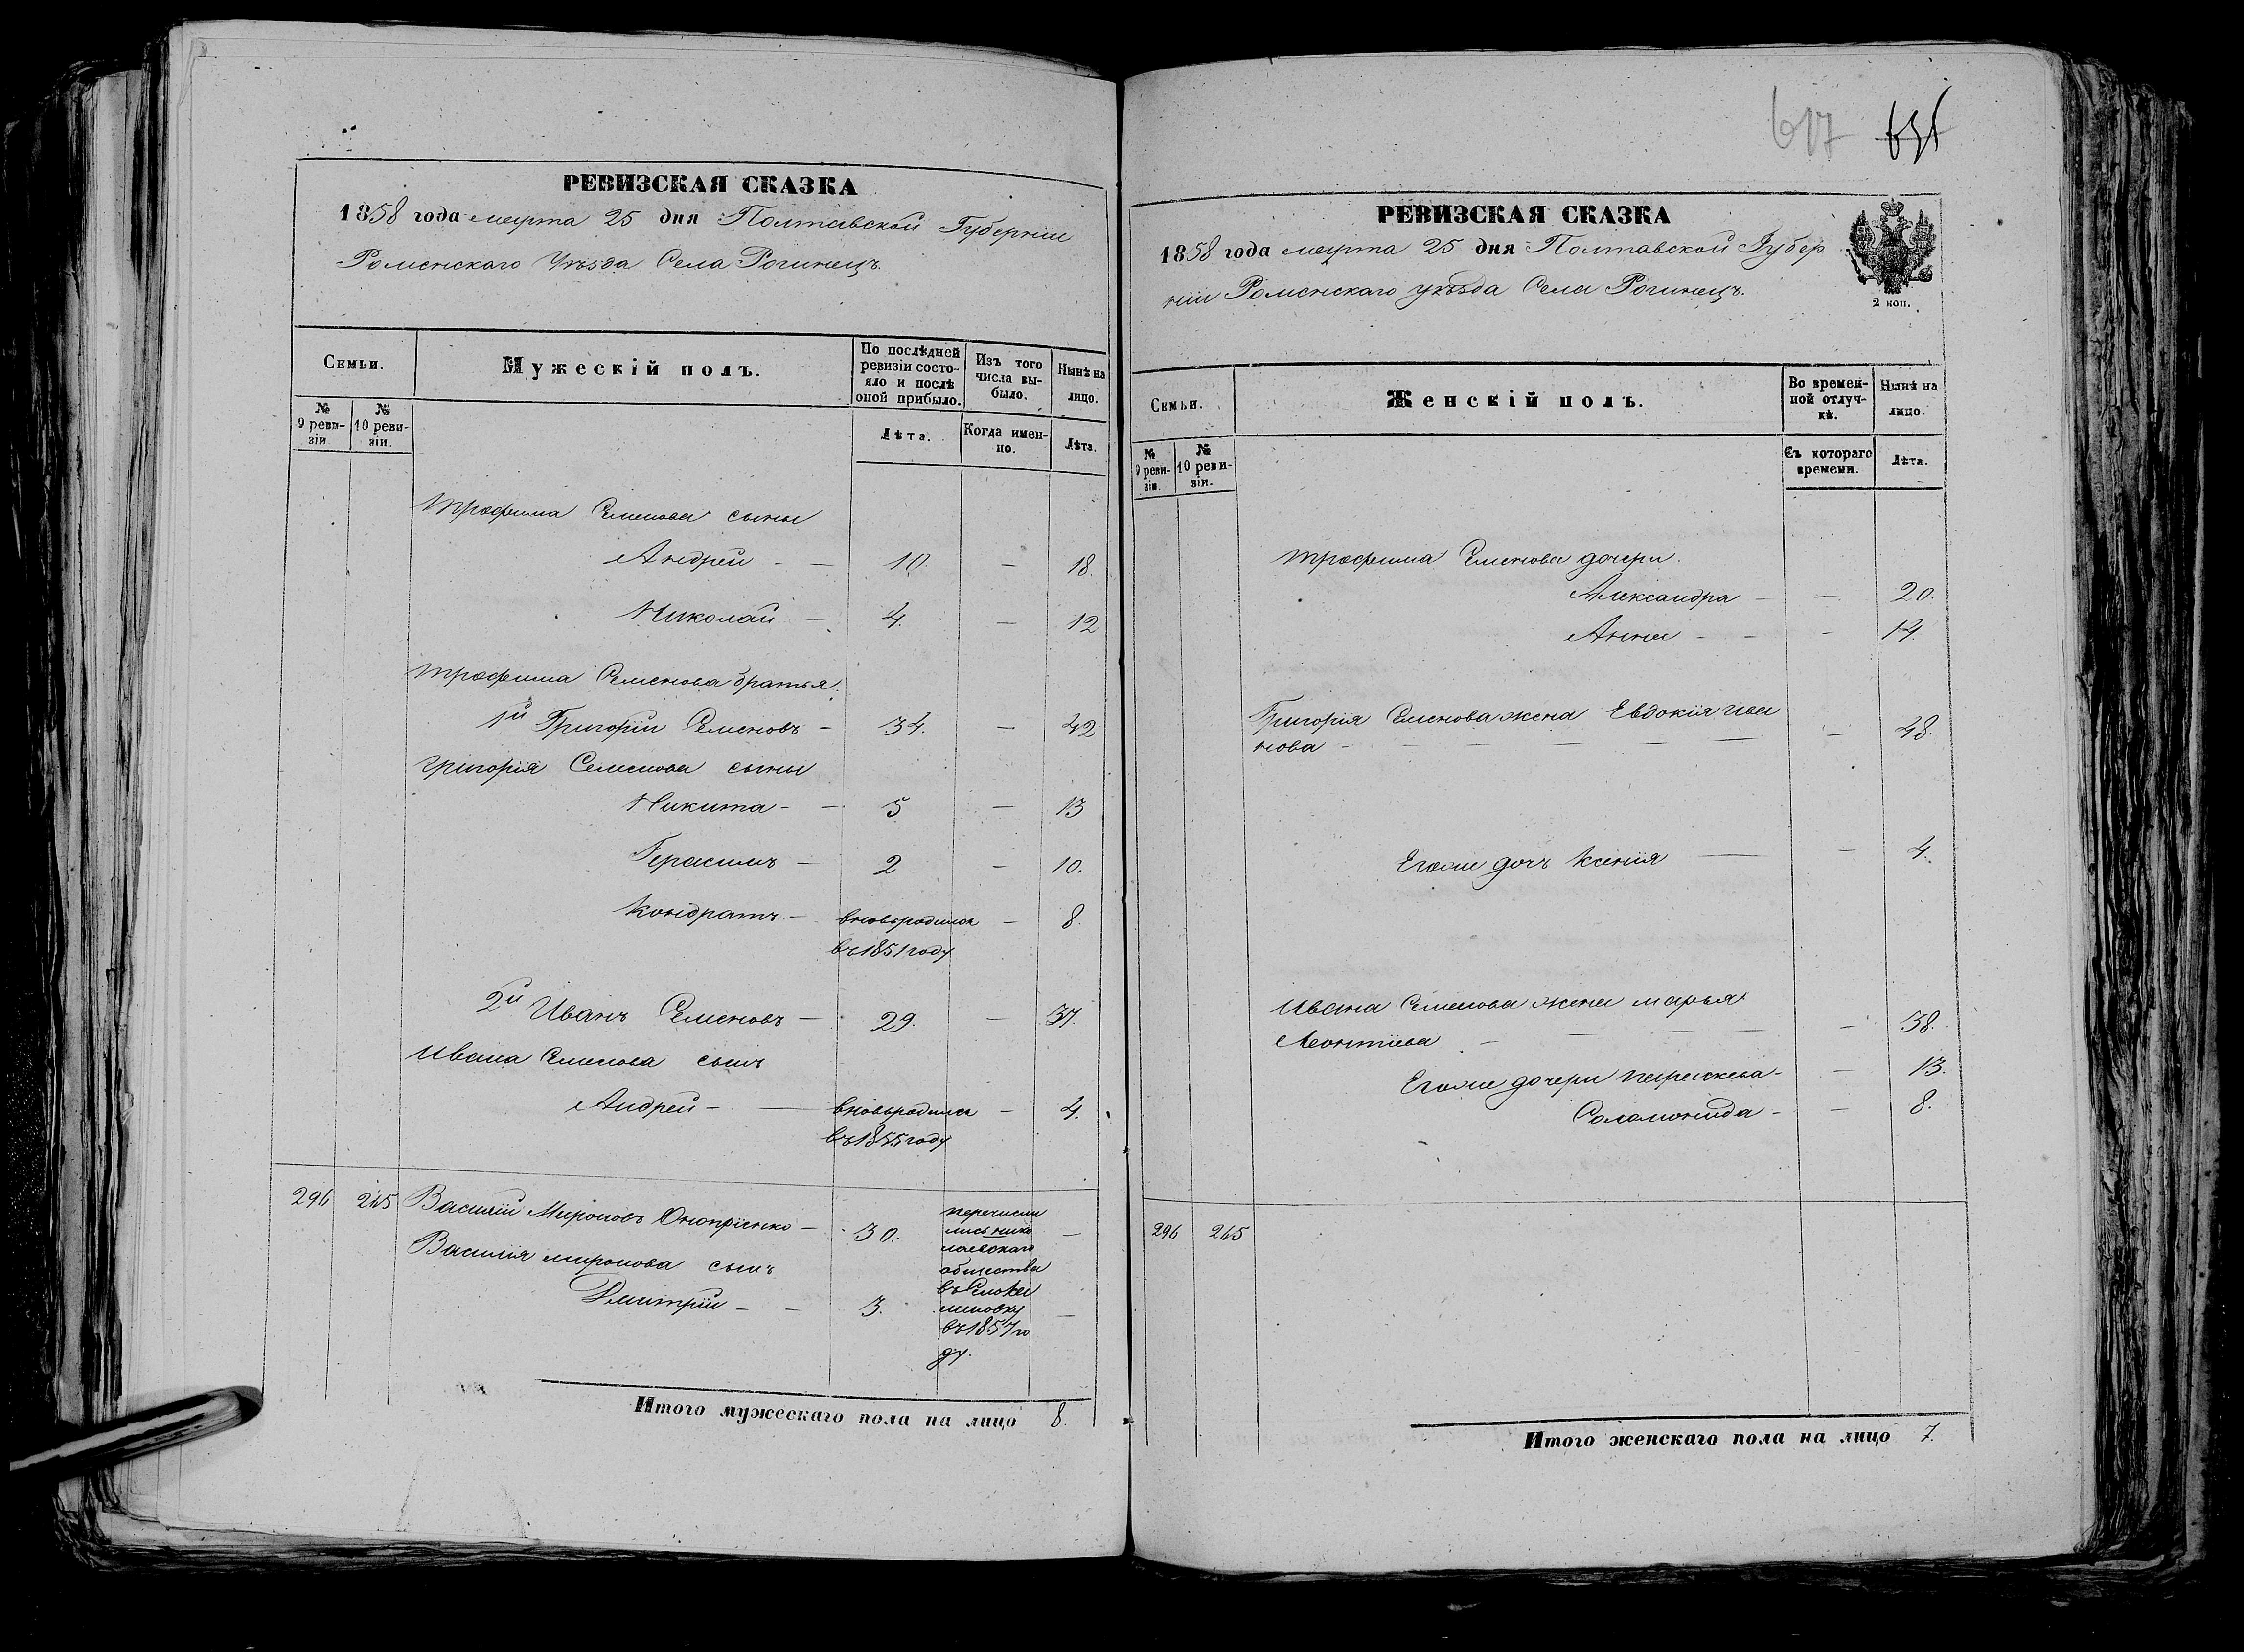 РЕВИЗСКАЯ СКАЗКА
1858 года марта 25 дня Полтавской Губерніи
Роменскаго Уѣзда Села Рогинецъ.
Семьи.
Мужескій полъ.
По послѣдней ревизіи состояло и послѣ оной прибыло.
Изъ того числа выбыло.
Нынѣ на лицо.
№ 9 ревизіи
№ 10 ревизіи.
Лѣта.
Когда именно.
Лѣта.
Трофима Семенова сыны
Андрей - — 10. — 18.
Николай — 4. — 12
Трофима Семенова братья.
1й Григорій Семеновъ — 34. — 42
Григорія Семенова сыны
Никита - — 5 — 13
Герасимъ — 2 — 10.
Кондратъ — вновьродился — 8.
въ 1851 году
2й Иванъ Семеновъ — 29. — 37.
Ивана Семенова сынъ
Андрей - — вновьродился — 4.
въ 1855 году
296 265 Василій Мироновъ Оноприенко — 30. —
Василія Миронова сынъ
Дмитрій — — 3. —
перечисли
лись нико
лаевскаго
общества
въ
въ 1857 го
ду.
Итого мужескаго пола на лицо 8.
617
РЕВИЗСКАЯ СКАЗКА
1858 года марта 25 дня Полтавской Губер
ніи Роменскаго уѣзда Села Рогинецъ.
2 коп.
Семьи.
Женскій полъ.
Во временной отлучкѣ.
Нынѣ на лицо.
№ 9 ревизіи.
№ 10 ревизіи.
Съ котораго времени.
Лѣта.
Трофима Семенова дочери.
Александра — — 20.
Анна - - — 14.
Григорія Семенова жена Евдокія Ива
нова - — — — — — — 48.
Егоже дочь Ксенія — — 4.
Ивана Семенова жена Марья
Леонтіева - — — — — 38.
Егоже дочери Параскева - — 13.
Соломонида - — 8.
296 265
Итого женскаго пола на лицо 7.